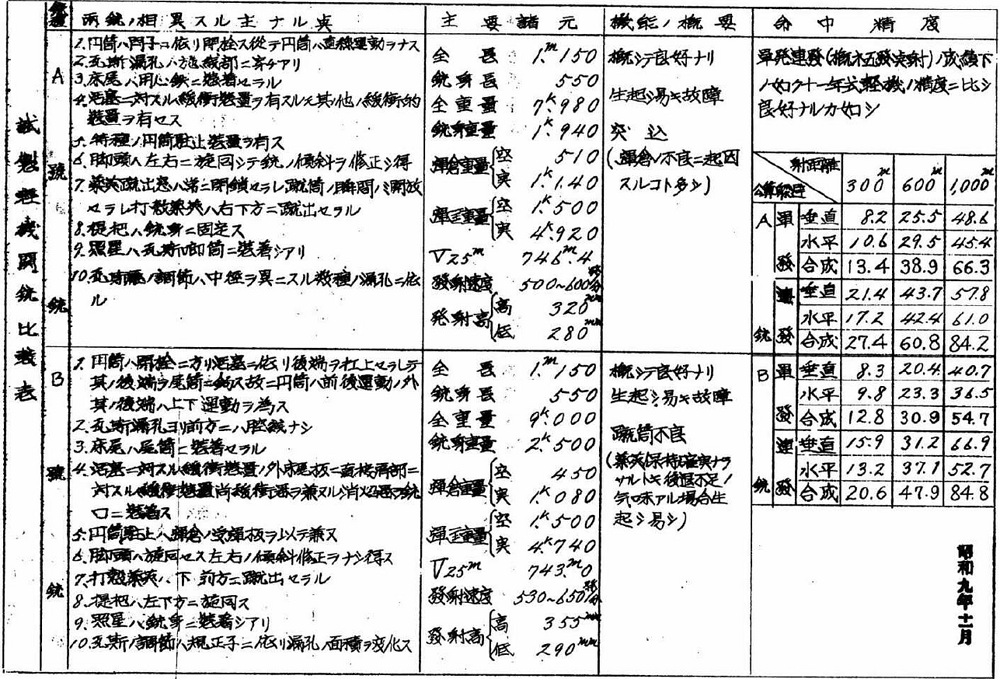 試製軽機関銃比較表
銃種
両銃ノ相異スル主ナル点
主要諸元
機能ノ概要
命中精度
A號銃
1.円筒ハ閂子ニ依リ閉栓ス従テ円筒ハ直線運動ヲナス
2.瓦斯漏孔ハ施綫部ニ寄チアリ
3.床尾ハ用心鉄ニ装着セラル
4.活塞ニ対スル緩衝装置ヲ有スルモ其ノ他ノ緩衝的
装置ヲ有セス
5.特種ノ円筒駐止装置ヲ有ス
6.脚頭ハ左右ニ旋回シテ銃ノ傾斜ヲ修正シ得
7.薬莢蹴出窓ハ常ニ閉鎖セラレ蹴筒ノ瞬間ノミ開放
セラレ打殻薬莢ハ右下方ニ蹴出セラル
8.提把ハ銃身ニ固定ス
9.照星ハ瓦斯喞筒ニ装着シアリ
10.瓦斯ノ調節ハ中径ヲ異ニスル数種ノ漏孔ニ依
ル
全長 1.ᵐ150
銃身長 550
全重量 7.ᵏ980
銃身重量 1.ᵏ940
弾倉重量 空 510
実 1.ᵏ140
弾玉重量 空 1.ᵏ500
実 4.ᵏ920
V25ᵐ 746.ᵐ4
發射速度 500~600発/分
発射高 高 320ᵐᵐ
低 280ᵐᵐ
概シテ良好ナリ
生起シ易キ故障
突込
(弾倉ノ不良ニ起因
スルコト多シ)
單発連發(概ネ五發点射)ノ成績下
ノ如ク十一年式軽機ノ精度ニ比シ
良好ナルカ如シ
射距離
公算躱避
300ᵐ 600ᵐ 1,000ᵐ
A號銃
單發 垂直 8.2 25.5 48.6
水平 10.6 29.5 45.4
合成 13.4 38.9 66.3
連發 垂直 21.4 43.7 57.8
水平 17.2 42.4 61.0
合成 27.4 60.8 84.2
B號銃
單發 垂直 8.3 20.4 40.7
水平 9.8 23.3 36.5
合成 12.8 30.9 54.7
連發 垂直 15.9 31.2 66.9
水平 13.2 37.1 52.7
合成 20.6 47.9 84.8
B號銃
1.円筒ハ閉栓ニ方リ活塞ニ依リ後端ヲ扛上セラレテ
其ノ後端ヲ尾筒ニ鈎ス故ニ円筒ハ前後運動ノ外
其ノ後端ハ上下運動ヲ為ス
2.瓦斯漏孔ヨリ前方ニハ腔綫ナシ
3.床尾ハ尾筒ニ装着セラル
4.活塞ニ対スル緩衝装置ノ外床尾板ニ直接肩部ニ
対スル緩衝装置尚緩衝器ヲ兼ヌル消焔器ヲ銃
口ニ装着ス
5.円筒駐止ハ弾倉ノ受弾板ヲ以テ兼ス
6.脚頭ハ旋回セス左右ノ傾斜修正ヲナシ得ス
7.打殻薬莢ハ下前方ニ蹴出セラル
8.提把ハ左下方ニ旋回ス
9.照星ハ銃身ニ装着シアリ
10.瓦斯ノ調節ハ規正子ニ依リ漏孔ノ面積ヲ変化ス
全長 1.ᵐ150
銃身長 550
全重量 9.ᵏ000
銃身重量 2.ᵏ500
弾倉重量 空 450
実 1.ᵏ080
弾玉重量 空 1.ᵏ500
実 4.ᵏ740
V25ᵐ 743.ᵐ0
發射速度 530~650発/分
發射高 高 355ᵐᵐ
低 290ᵐᵐ
概シテ良好ナリ
生起シ易キ故障
蹴筒不良
(薬莢保持確実ナラ
サルトキ後退不足ノ
気味アル場合生
起シ易シ)
昭和九年十二月